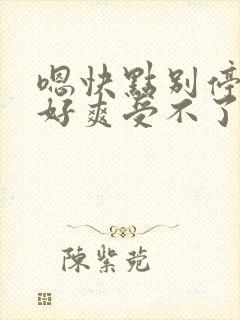 嗯快點别停
好爽受不了
陳紫菀